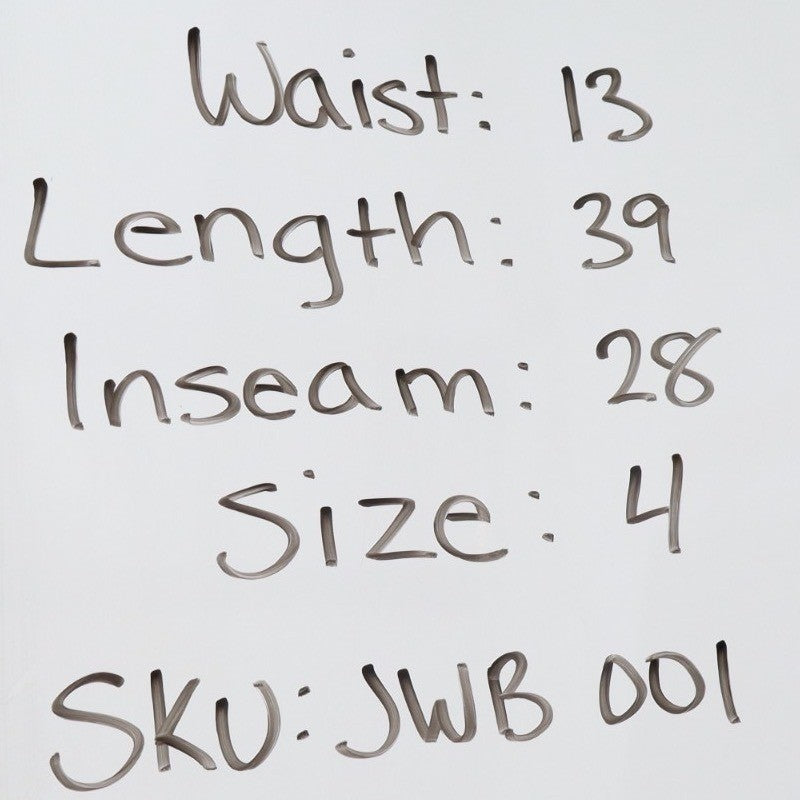 Waist: 13
Length: 39
Inseam: 28
Size: 4
SKU: JWB 001